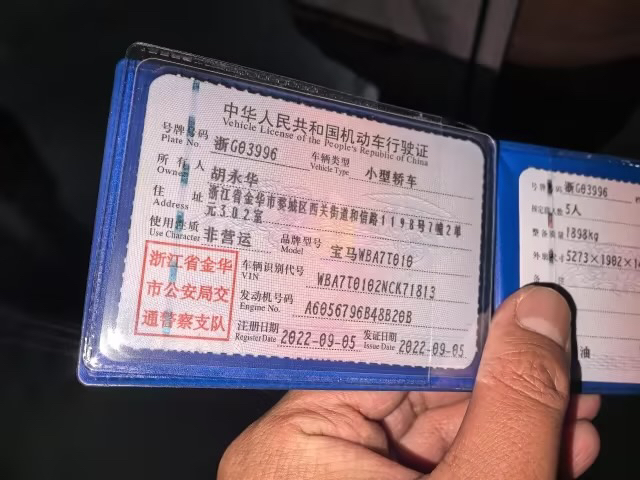 中华人民共和国机动车行驶证
Vehicle License of the People's Republic of China
号牌号码 浙G03996 车辆类型 小型轿车
Plate No. Vehicle Type
所有人 胡永华
Owner
住址 浙江省金华市婺城区西关街道和信路1198号7幢2单
Address 元302室
使用性质 非营运 品牌型号 宝马WBA7T010
Use Character Model
浙江省金华
市公安局交
通警察支队
车辆识别代号 WBA7T0102NCK71813
VIN
发动机号码 A6056796B48B20B
Engine No.
注册日期 2022-09-05 发证日期 2022-09-05
Register Date Issue Date
号牌号码 浙G03996
核定载人数 5人
整备质量 1898kg
外廓尺寸 5273×1902×14
备
油